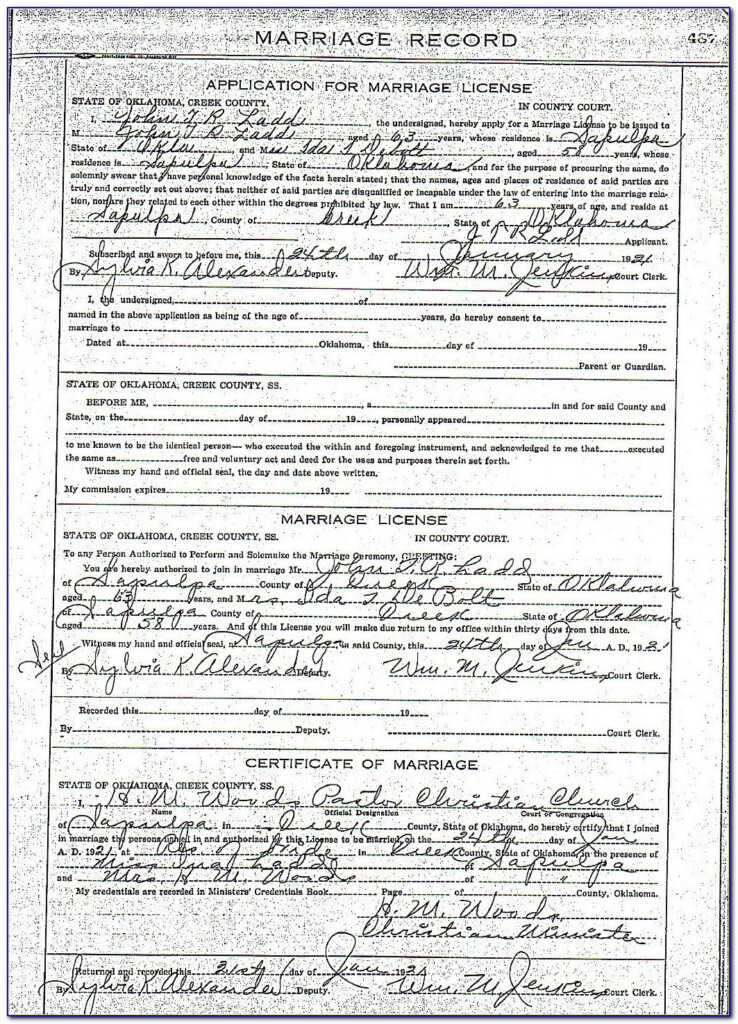 MARRIAGE RECORD 467
APPLICATION FOR MARRIAGE LICENSE
STATE OF OKLAHOMA, CREEK COUNTY. IN COUNTY COURT.
I, John T. R. Ladd, the undersigned, hereby apply for a Marriage License to be issued to
M John T R Ladd aged 63 years, whose residence is Sapulpa
State of Okla and Mrs Ida T aged 58 years, whose
residence is Sapulpa, State of Oklahoma, and for the purpose of procuring the same, do
solemnly swear that I have personal knowledge of the facts herein stated; that the names, ages and places of residence of said parties are
truly and correctly set out above; that neither of said parties are disqualified or incapable under the law of entering into the marriage rela-
tion, nor are they related to each other within the degrees prohibited by law. That I am 63 years of age, and reside at
Sapulpa, County of Creek, State of Oklahoma
J T R Ladd Applicant.
Subscribed and sworn to before me, this 24th day of January 1921
By Sylvia K. Alexander Deputy. Wm. M. Jenkins Court Clerk.
I, the undersigned, of
named in the above application as being of the age of years, do hereby consent to
marriage to
Dated at Oklahoma, this day of 19
Parent or Guardian.
STATE OF OKLAHOMA, CREEK COUNTY, SS.
BEFORE ME, , a in and for said County and
State, on the day of 19 , personally appeared
to me known to be the identical person— who executed the within and foregoing instrument, and acknowledged to me that executed
the same as free and voluntary act and deed for the uses and purposes therein set forth.
Witness my hand and official seal, the day and date above written.
My commission expires 19
MARRIAGE LICENSE
STATE OF OKLAHOMA, CREEK COUNTY, SS. IN COUNTY COURT.
To any Person Authorized to Perform and Solemnize the Marriage Ceremony, GREETING:
You are hereby authorized to join in marriage Mr. John T. R. Ladd
of Sapulpa County of Creek State of Oklahoma
aged 63 years, and Mrs. Ida T. De Bolt
of Sapulpa County of Creek State of Oklahoma
aged 58 years. And of this License you will make due return to my office within thirty days from this date.
Seal Witness my hand and official seal, at Sapulpa in said County, this 24th day of Jan A. D., 1921
By Sylvia K. Alexander Deputy. Wm. M. Jenkins Court Clerk.
Recorded this day of 19
By Deputy. Court Clerk.
CERTIFICATE OF MARRIAGE
STATE OF OKLAHOMA, CREEK COUNTY, SS.
I, H. M. Woods Pastor Christian Church
Name Official Designation Court or Congregation
of Sapulpa in Creek County, State of Oklahoma, do hereby certify that I joined
in marriage the persons named in and authorized by this License to be married, on the 24th day of Jan
A. D. 1921, at in Creek County, State of Oklahoma, in the presence of
Miss Ladd of Sapulpa
and Mrs. H. M. Woods of "
My credentials are recorded in Ministers' Credentials Book Page of County, Oklahoma.
H. M. Woods
Christian Minister
Returned and recorded this day of Jan 192
By Sylvia K. Alexander Deputy. Wm. M. Jenkins Court Clerk.